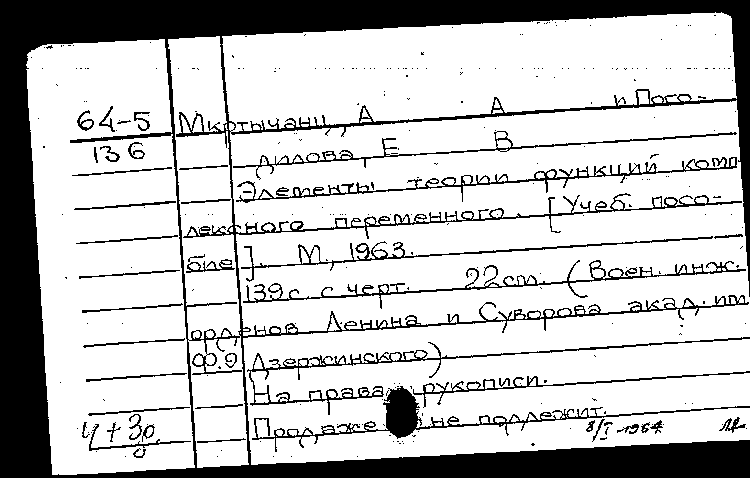 64-5 Мкртычанц, А А и Пого-
136 дилова, Е В
Элементы теории функций комп
лексного переменного. [Учеб. посо-
бие]. М., 1963.
139 с. с черт. 22 см. (Воен. инж.
орденов Ленина и Суворова акад. им
Ф.Э Дзержинского).
На правах рукописи.
Продаже не подлежит.
8/I-1964